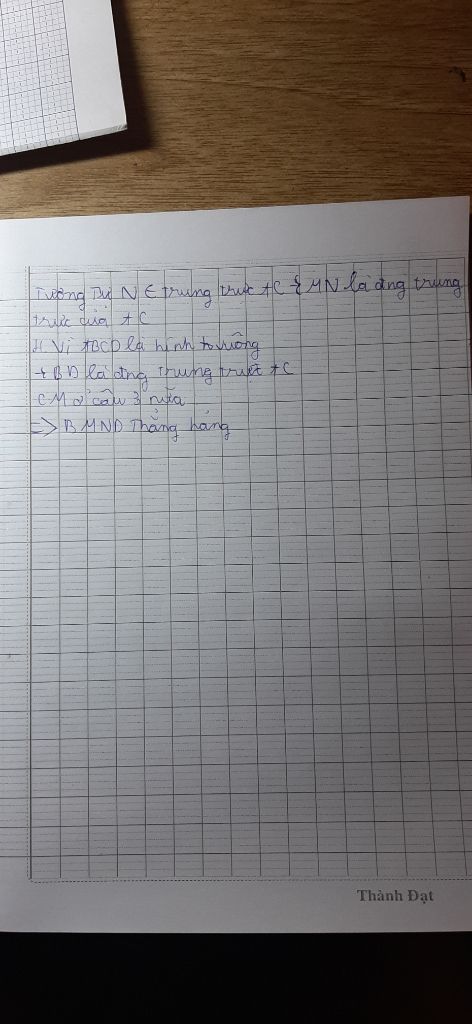 Tương Tự N ∈ trung trực AC { MN là đng trung
trực của AC
4 Vì ABCD là hình vuông
→ BD là đng trung trực AC
CM ở câu 3 nữa
=> B MND Thẳng hàng
Thành Đạt